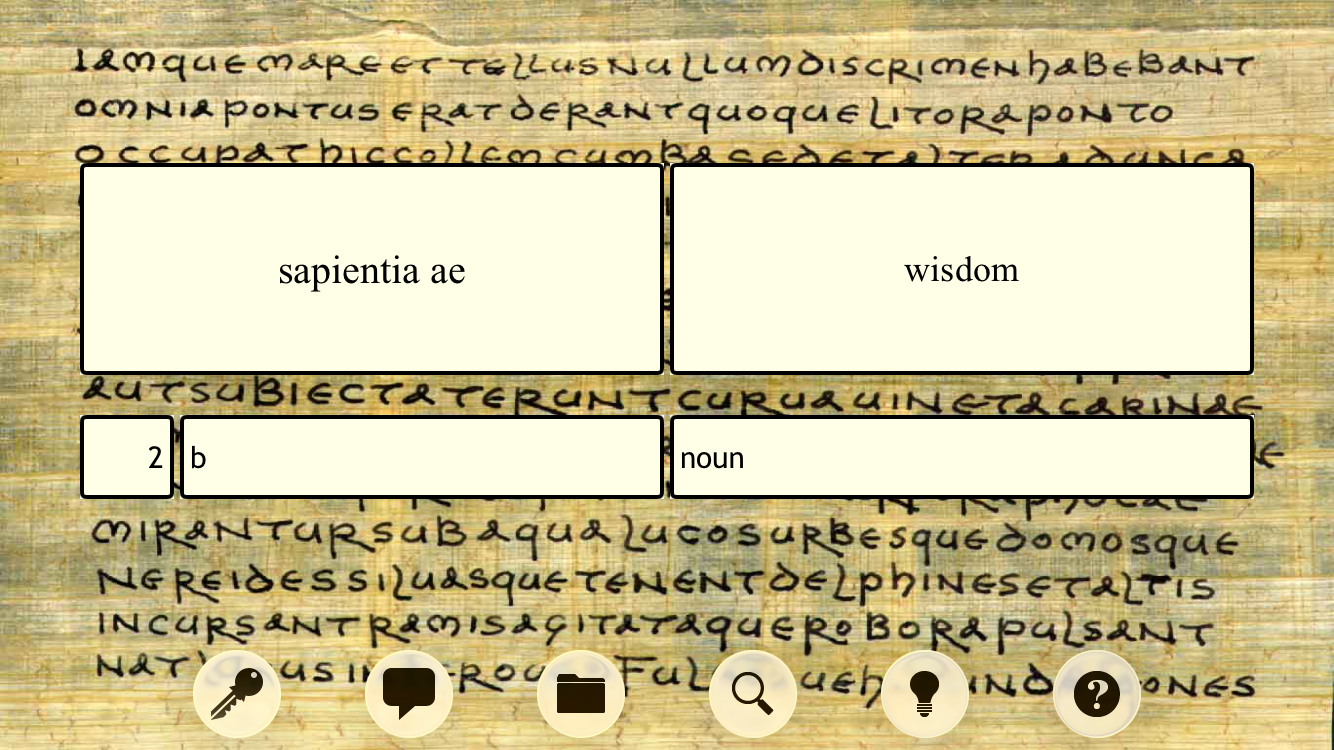 IAMQUEMAREETTELLUSNULLUMDISCRIMENHABEBANT
OMNIAPONTUSERATDERANTQUOQUELITORAPONTO
OCCUPATHICCOLLEMCUMBASEDETALTERADUNCA
sapientia ae
wisdom
AUTSUBIECTATERUNTCURUAUINETACARINAE
2
b
noun
MIRANTURSUBAQUALUCOSURBESQUEDOMOSQUE
NEREIDESSILUASQUETENENTDELPHINESETALTIS
INCURSANTRAMISAGITATAQUEROBORAPULSANT